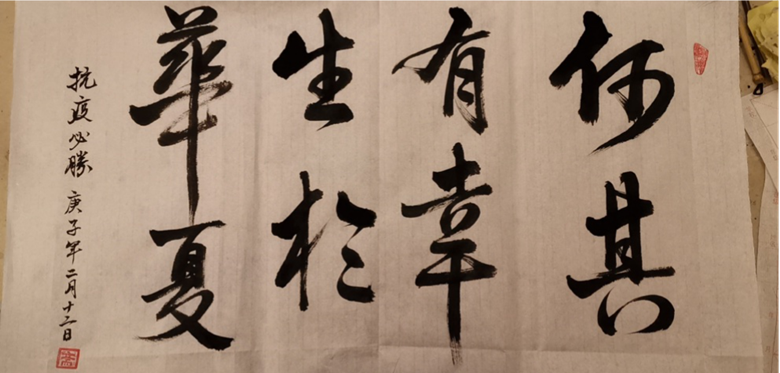 何其
有幸
生於
華夏
抗疫必勝 庚子年二月十二日